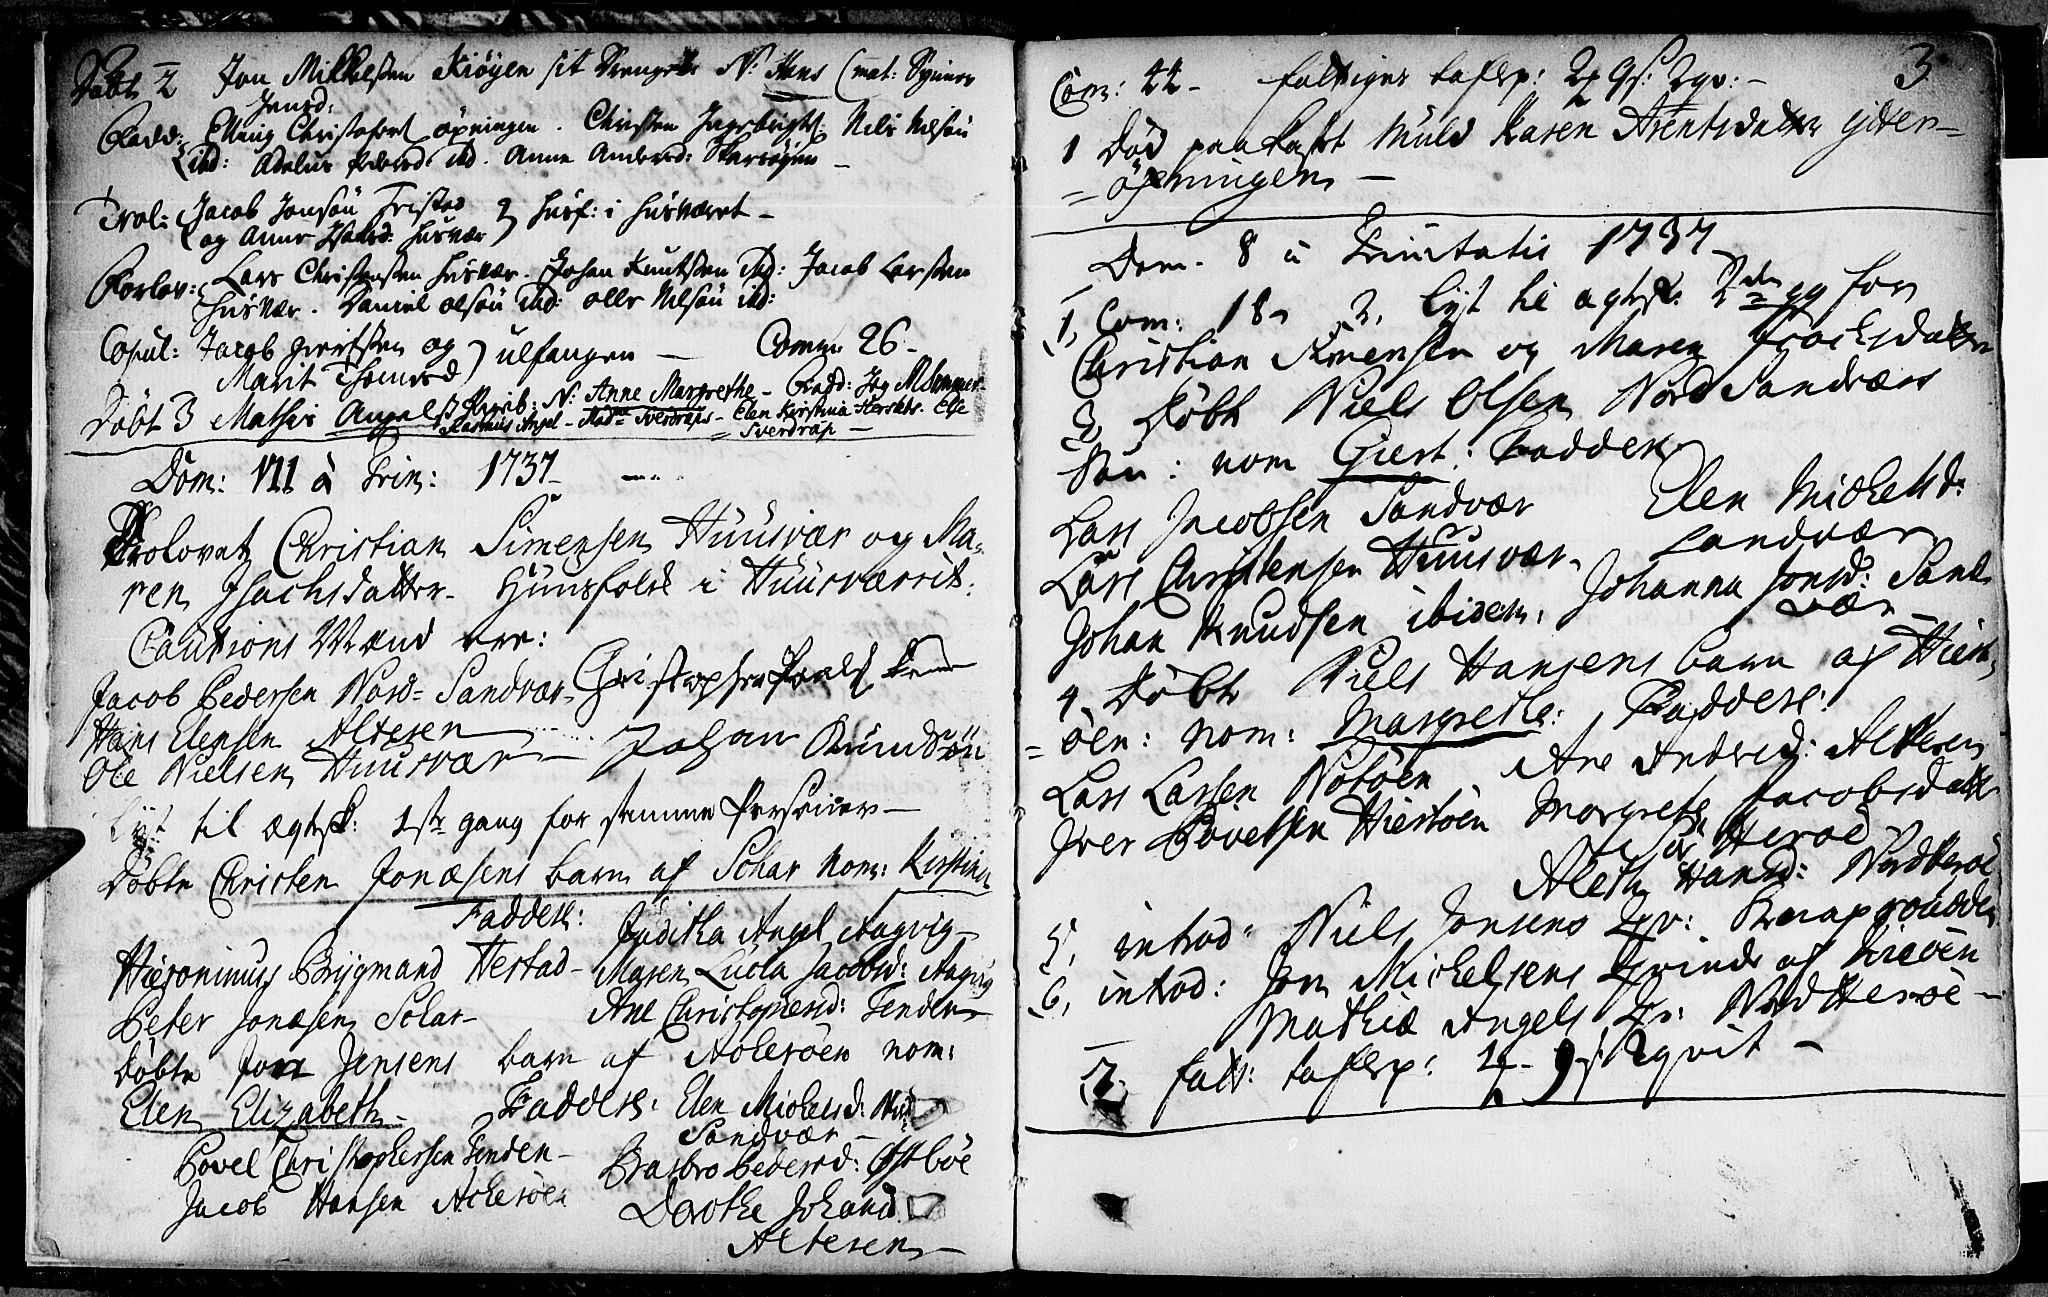 Döbt 2 Jon Mikkelsen Kiöyen sit Drengeb: N: Hans (mat: Synnev
Jensd:
Fadd: Elling Christofers: öpningen. Christen Ingebrigts. Nils Nilsön
ibd: Adelus Peders: ibd. Anne Andersd: Skarvöyen –
Trol: Jacob Jonsön Tristad
og Anne Hansd: Husvær } Husf: i Husværet –
Forlov: Lars Christensen Husvær. Johan Knutsen ibd: Jacob Larsen
Husvær. Daniel Olsön ibd: Olle Nilsön ibd:
Copul: Jacob Giertsen og
Marit Thomasd ) ulfangen – Comm: 26 –
Döbt 3 Mathis Angels Pigeb: N: Anne Margrethe – Fadd: Jeg M. Hammer.
Rasmus Angel – Madme Sverdrups – Elen Kirstina Hersleb. Else
Sverdrup –
Dom: VII à Trin: 1737 –
Trolovet Christian Simensen Huusvær og Ma-
ren Isachsdatter – Huusfolck i Huusværrit:
Cautions Mænd ere:
Jacob Pedersen Nord=Sandvær – Christopher Povels
Hans Elensen Altesen
Ole Nielsen Huusvær – Johan Knudsön
Lyst til ægtsk: 1ste gang for samme Personer –
Döbte Christen Jonæsens barn af Solvar nom: Kirstina
Fadders: Juditha Angel Aagvig –
Hieronimus Brÿgmand Hestad – Maren Lucia Jacobsd: Aagvig
Peter Jonæsen Solar – Ane Christophersd: Tenden
Döbte Jon Jensens barn af Aakeröen nom:
Elen Elizabeth – Fadders: Elen Mickelsd: Nord
Sandvær –
Povel Christophersen Tenden – Barbro Pedersd: Ostböe
Jacob Hansen Ackeröen Dorthe Johansd.
Altesen –
3
Com: 44 – fattiges tafle p: 2 – 9s: Dqv: –
1 Död paakast Muld Karen Arentsdatter ytter-
=öpningen –
Dom. 8 à Trinitatis 1737 –
1, Com: 18. 2, lyst til ægtsk: 2den gg for
Christian Simensen og Maren Isachsdatter
3, Döbt Niels Olsen Nord Sandværs
Sön: nom Giert: Faddere
Lars Jacobsen Sandvær Elen Mickelsd:
Lars Christensen Huusvær. Sandvær
Johan Knudsen ibidem: Johanna Jonsd: Sand-
vær –
4. Döbt Niels Hansens barn af Hiert-
=öen: nom: Margrethe: Faddere:
Lars Larsen Notöen Ane Andersd: Altesen
Iver Povelsen Hiertöen Margrete Jacobsdatter
Heröe
Aleth Hansd: Nordheröe
5, introd: Niels Jonsens Qv: Knapsouden
6, introd: Jon Mickelsens Qvinde af Kieöen
Mathiæ Angels Qv: Nordheröe –
7. fatt: tafle p: 4 – 9s: Dqvit –